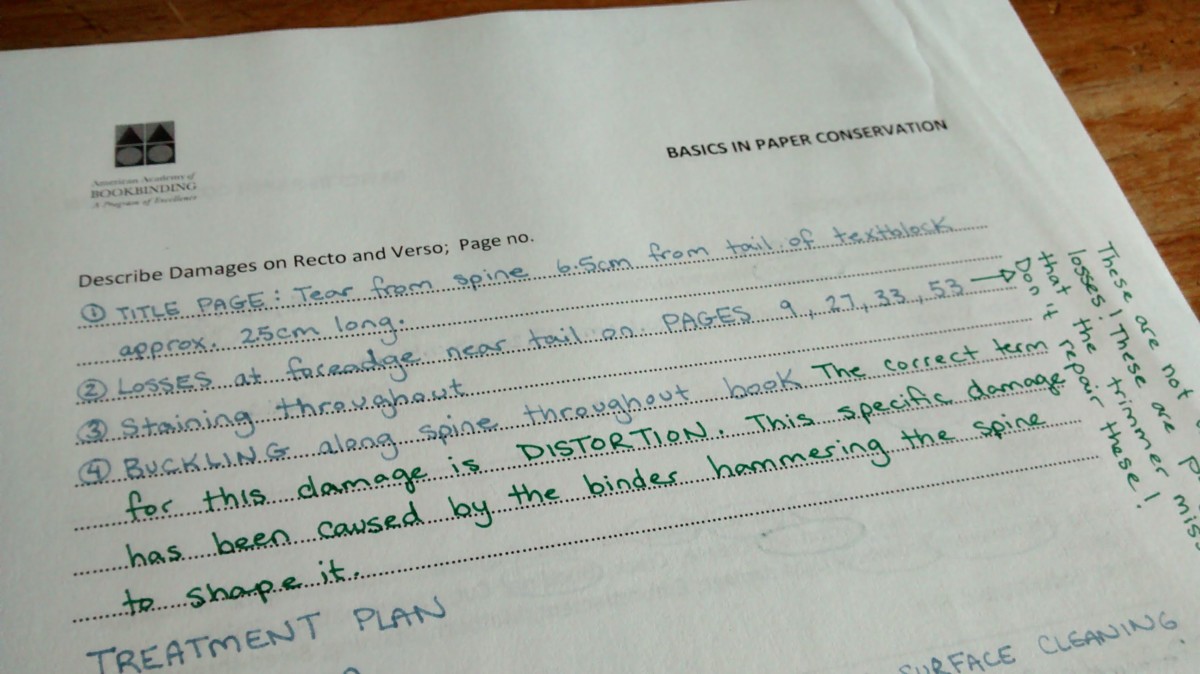 American Academy of
BOOKBINDING
A Program of Excellence
BASICS IN PAPER CONSERVATION
Describe Damages on Recto and Verso; Page no.
① TITLE PAGE: Tear from spine 6.5cm from tail of textblock
approx. 25cm long.
② LOSSES at foreadge near tail on PAGES 9, 27, 33, 53 →
③ Staining throughout
④ BUCKLING along spine throughout book The correct term
for this damage is DISTORTION. This specific damage
has been caused by the binder hammering the spine
to shape it.
These are not
losses! These are
that the trimmer
Don't repair these!
TREATMENT PLAN
SURFACE CLEANING